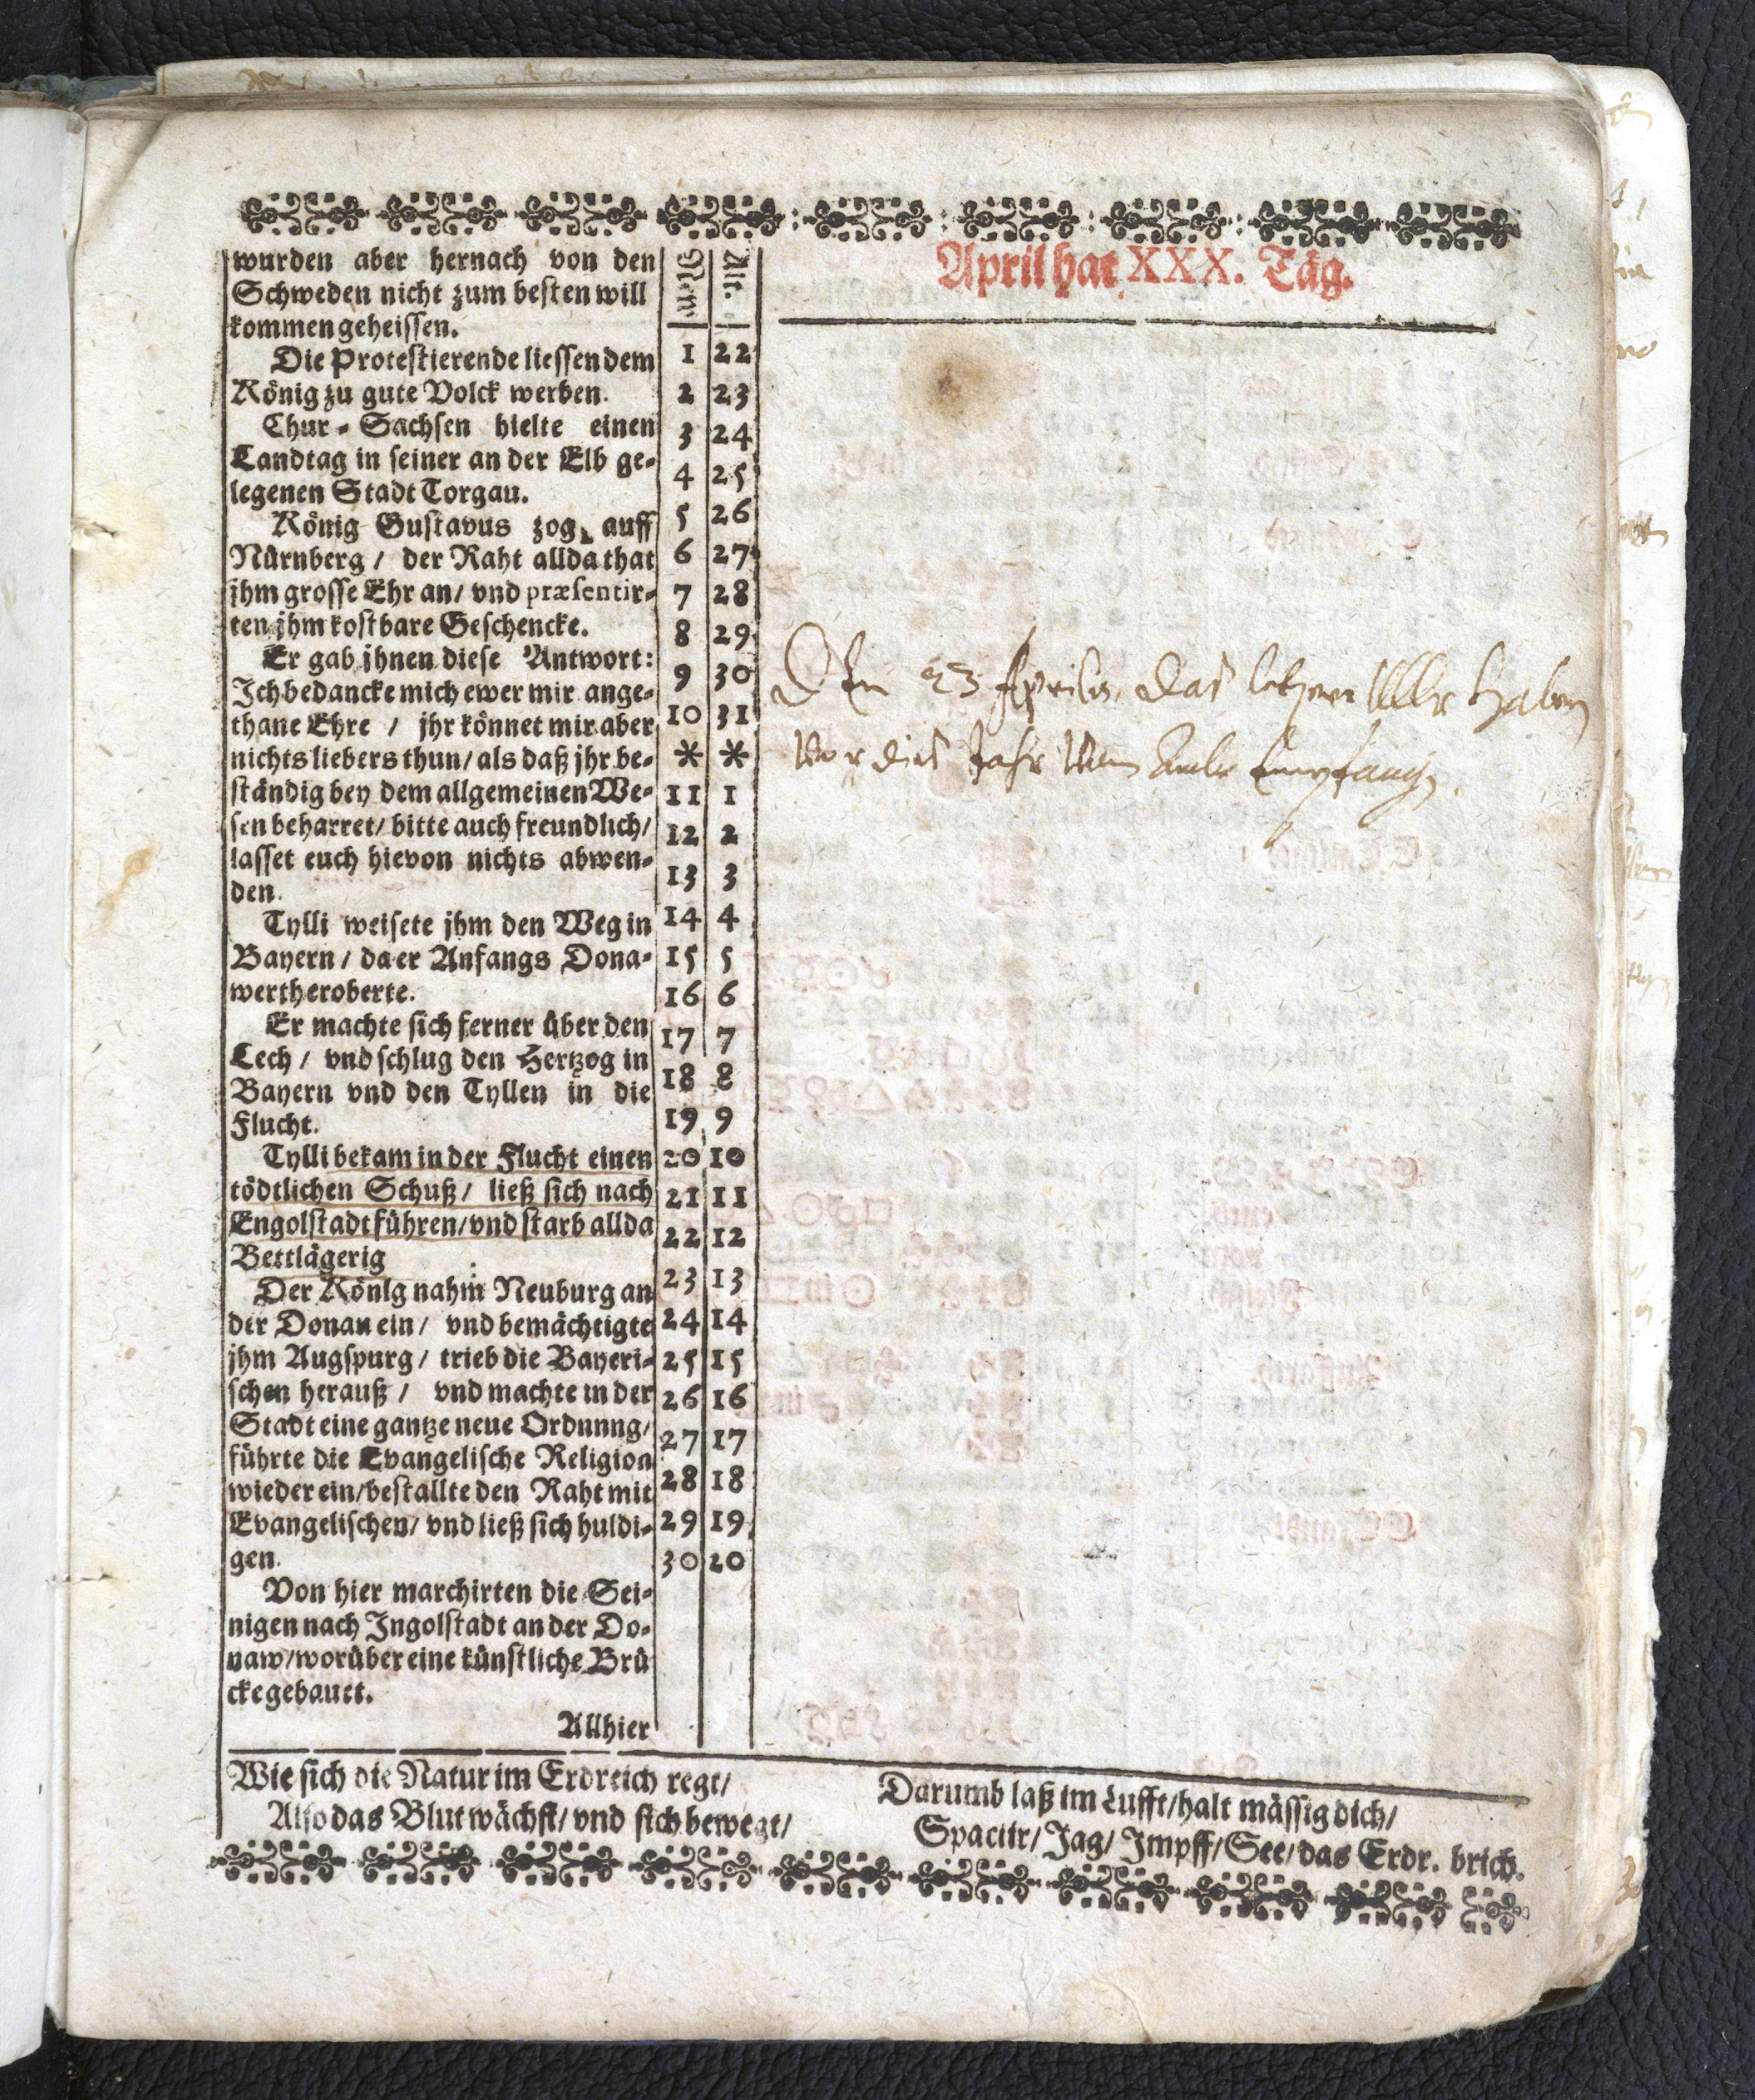 April hat XXX. Täg.
wurden aber hernach von den
Schweden nicht zum besten will
kommen geheissen.
Die Protestierende liessen dem
König zu gute Volck werben.
Chur-Sachsen hielte einen
Landtag in seiner an der Elb ge-
legenen Stadt Torgau.
König Gustavus zog auff
Nürnberg / der Raht allda that
jhm grosse Ehr an / vnd præsentir-
ten jhm kostbare Geschencke.
Er gab jhnen diese Antwort:
Ich bedancke mich ewer mir ange-
thane Ehre / jhr könnet mir aber
nichts liebers thun / als daß jhr be-
ständig bey dem allgemeinen We-
sen beharret / bitte auch freundlich /
lasset euch hievon nichts abwen-
den.
Tylli weisete jhm den Weg in
Bayern / da er Anfangs Dona-
werth eroberte.
Er machte sich ferner über den
Lech / vnd schlug den Hertzog in
Bayern vnd den Tyllen in die
Flucht.
Tylli bekam in der Flucht einen
tödtlichen Schuß / ließ sich nach
Engolstadt führen / vnd starb allda
Bettlägerig
Der Könlg nahm Neuburg an
der Donau ein / vnd bemächtigte
jhm Augspurg / trieb die Bayeri-
schen herauß / vnd machte in der
Stadt eine gantze neue Ordnnng /
führte die Evangelische Religion
wieder ein / bestallte den Raht mit
Evangelischen / vnd ließ sich huldi-
gen.
Von hier marchirten die Sei-
nigen nach Ingolstadt an der Do-
naw / worüber eine künstliche Brü
cke gebauet.
Allhier
New. Alt.
1 22
2 23
3 24
4 25
5 26
6 27
7 28
8 29
9 30
10 31
* *
11 1
12 2
13 3
14 4
15 5
16 6
17 7
18 8
19 9
20 10
21 11
22 12
23 13
24 14
25 15
26 16
27 17
28 18
29 19
30 20
Den 23 Aprilis, das haben
vor dies Jahr
Wie sich die Natur im Erdreich regt /
Also das Blut wächst / vnd sich bewegt /
Darumb laß im Lufft / halt mässig dich /
Spaciir / Jag / Impff / See / das Erdr. brich.